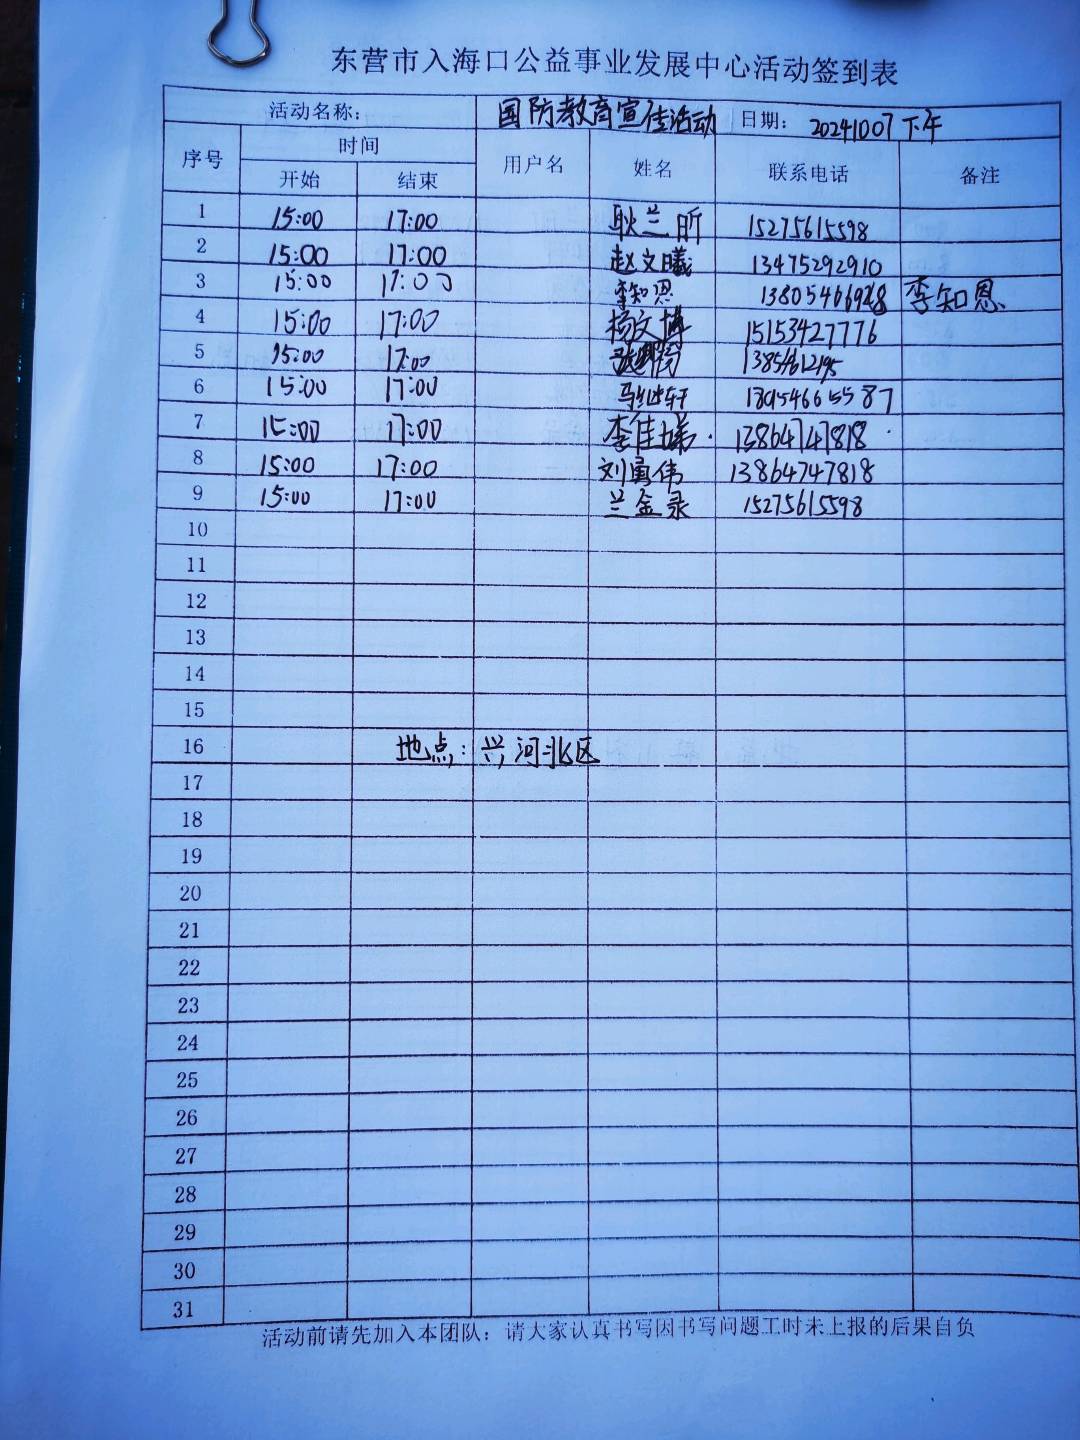 东营市入海口公益事业发展中心活动签到表
活动名称: 国防教育宣传活动 日期: 20241007下午
序号 时间 用户名 姓名 联系电话 备注
开始 结束
1 15:00 17:00 耿兰昕 15275615598
2 15:00 17:00 赵文曦 13475292910
3 15:00 17:00 李知恩 138054669 李知恩
4 15:00 17:00 杨文博 15153427776
5 15:00 17:00
6 15:00 17:00 马继轩 18954665587
7 15:00 17:00 李佳娣 13864747818
8 15:00 17:00 刘勇伟 13864747818
9 15:00 17:00 兰金录 15275615598
10
11
12
13
14
15
16 地点: 兴河北区
17
18
19
20
21
22
23
24
25
26
27
28
29
30
31
活动前请先加入本团队: 请大家认真书写因书写问题工时未上报的后果自负